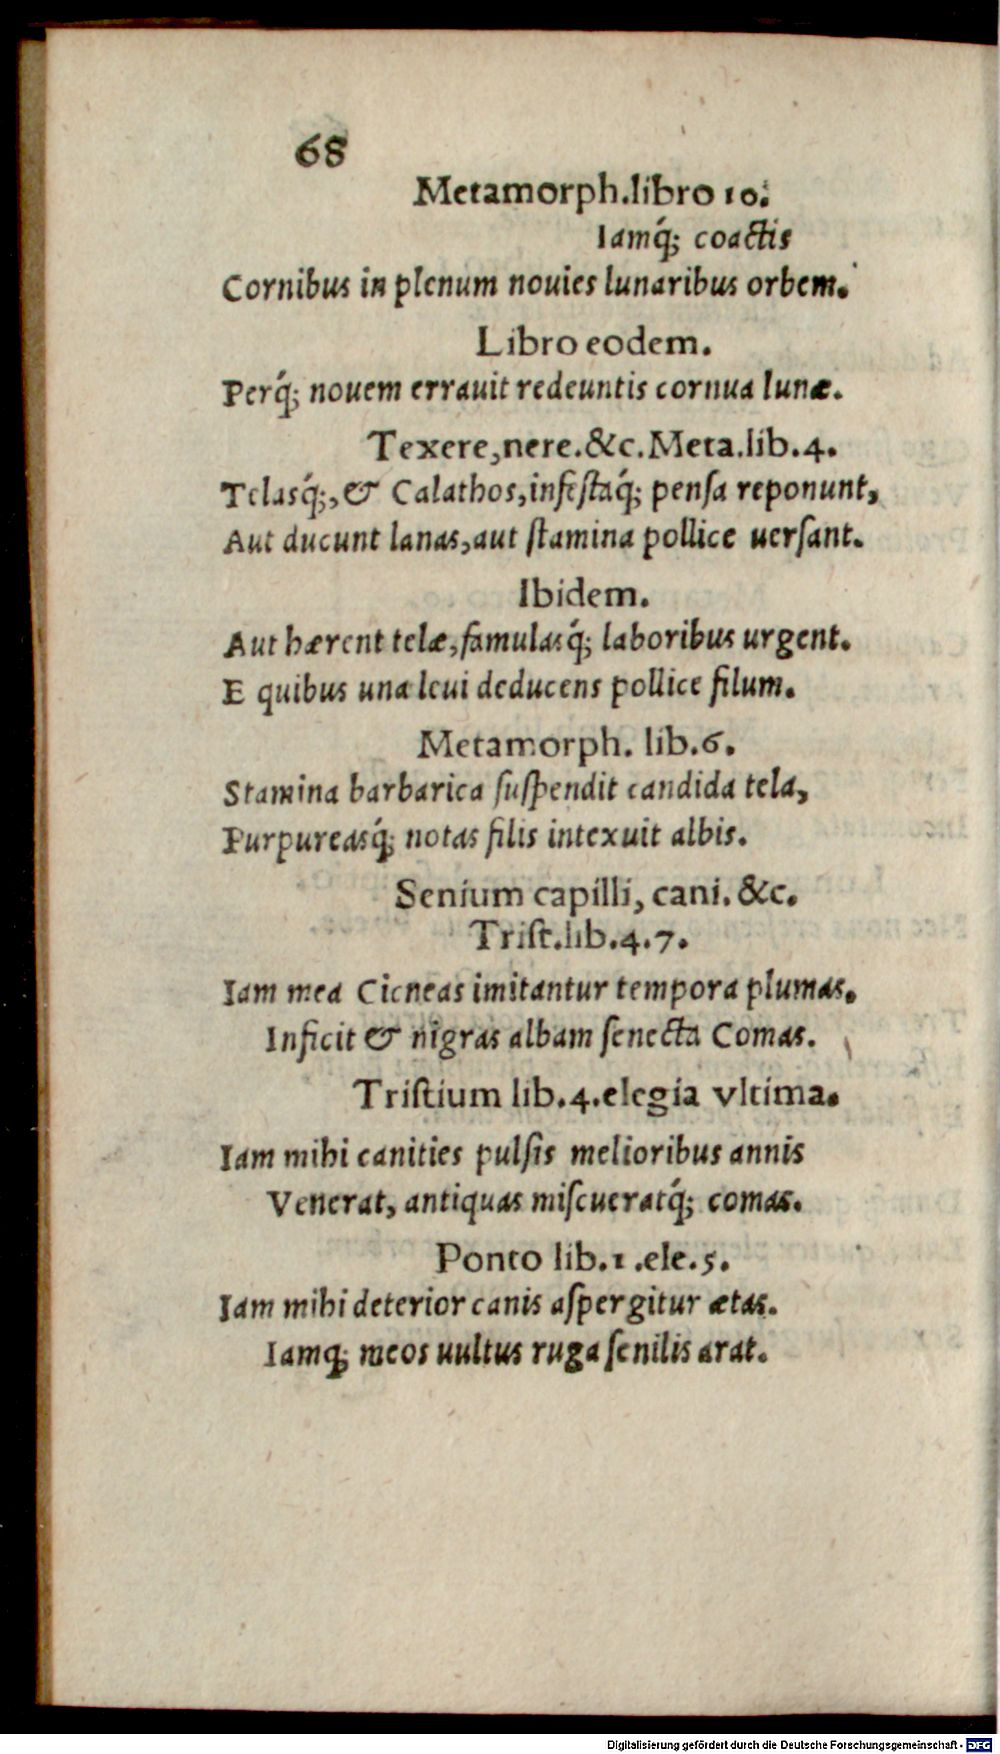 68
Metamorph.libro 10.
Iamq́; coactis
Cornibus in plenum nouies lunaribus orbem.
Libro eodem.
Perq́; nouem errauit redeuntis cornua lunæ.
Texere,nere.&c.Meta.lib.4.
Telasq́;,& Calathos,infestaq́; pensa reponunt,
Aut ducunt lanas,aut stamina pollice uersant.
Ibidem.
Aut hærent telæ,famulasq́; laboribus urgent.
E quibus una leui deducens pollice filum.
Metamorph. lib.6.
Stamina barbarica suspendit candida tela,
Purpureasq́; notas filis intexuit albis.
Senium capilli, cani. &c.
Trist.lib.4.7.
Iam mea Cicneas imitantur tempora plumas.
Inficit & nigras albam senecta Comas.
Tristium lib.4.elegia vltima.
Iam mihi canities pulsis melioribus annis
Venerat, antiquas miscueratq́; comas.
Ponto lib.1.ele.5.
Iam mihi deterior canis aspergitur ætas.
Iamq; meos uultus ruga senilis arat.
Digitalisierung gefördert durch die Deutsche Forschungsgemeinschaft - DFG